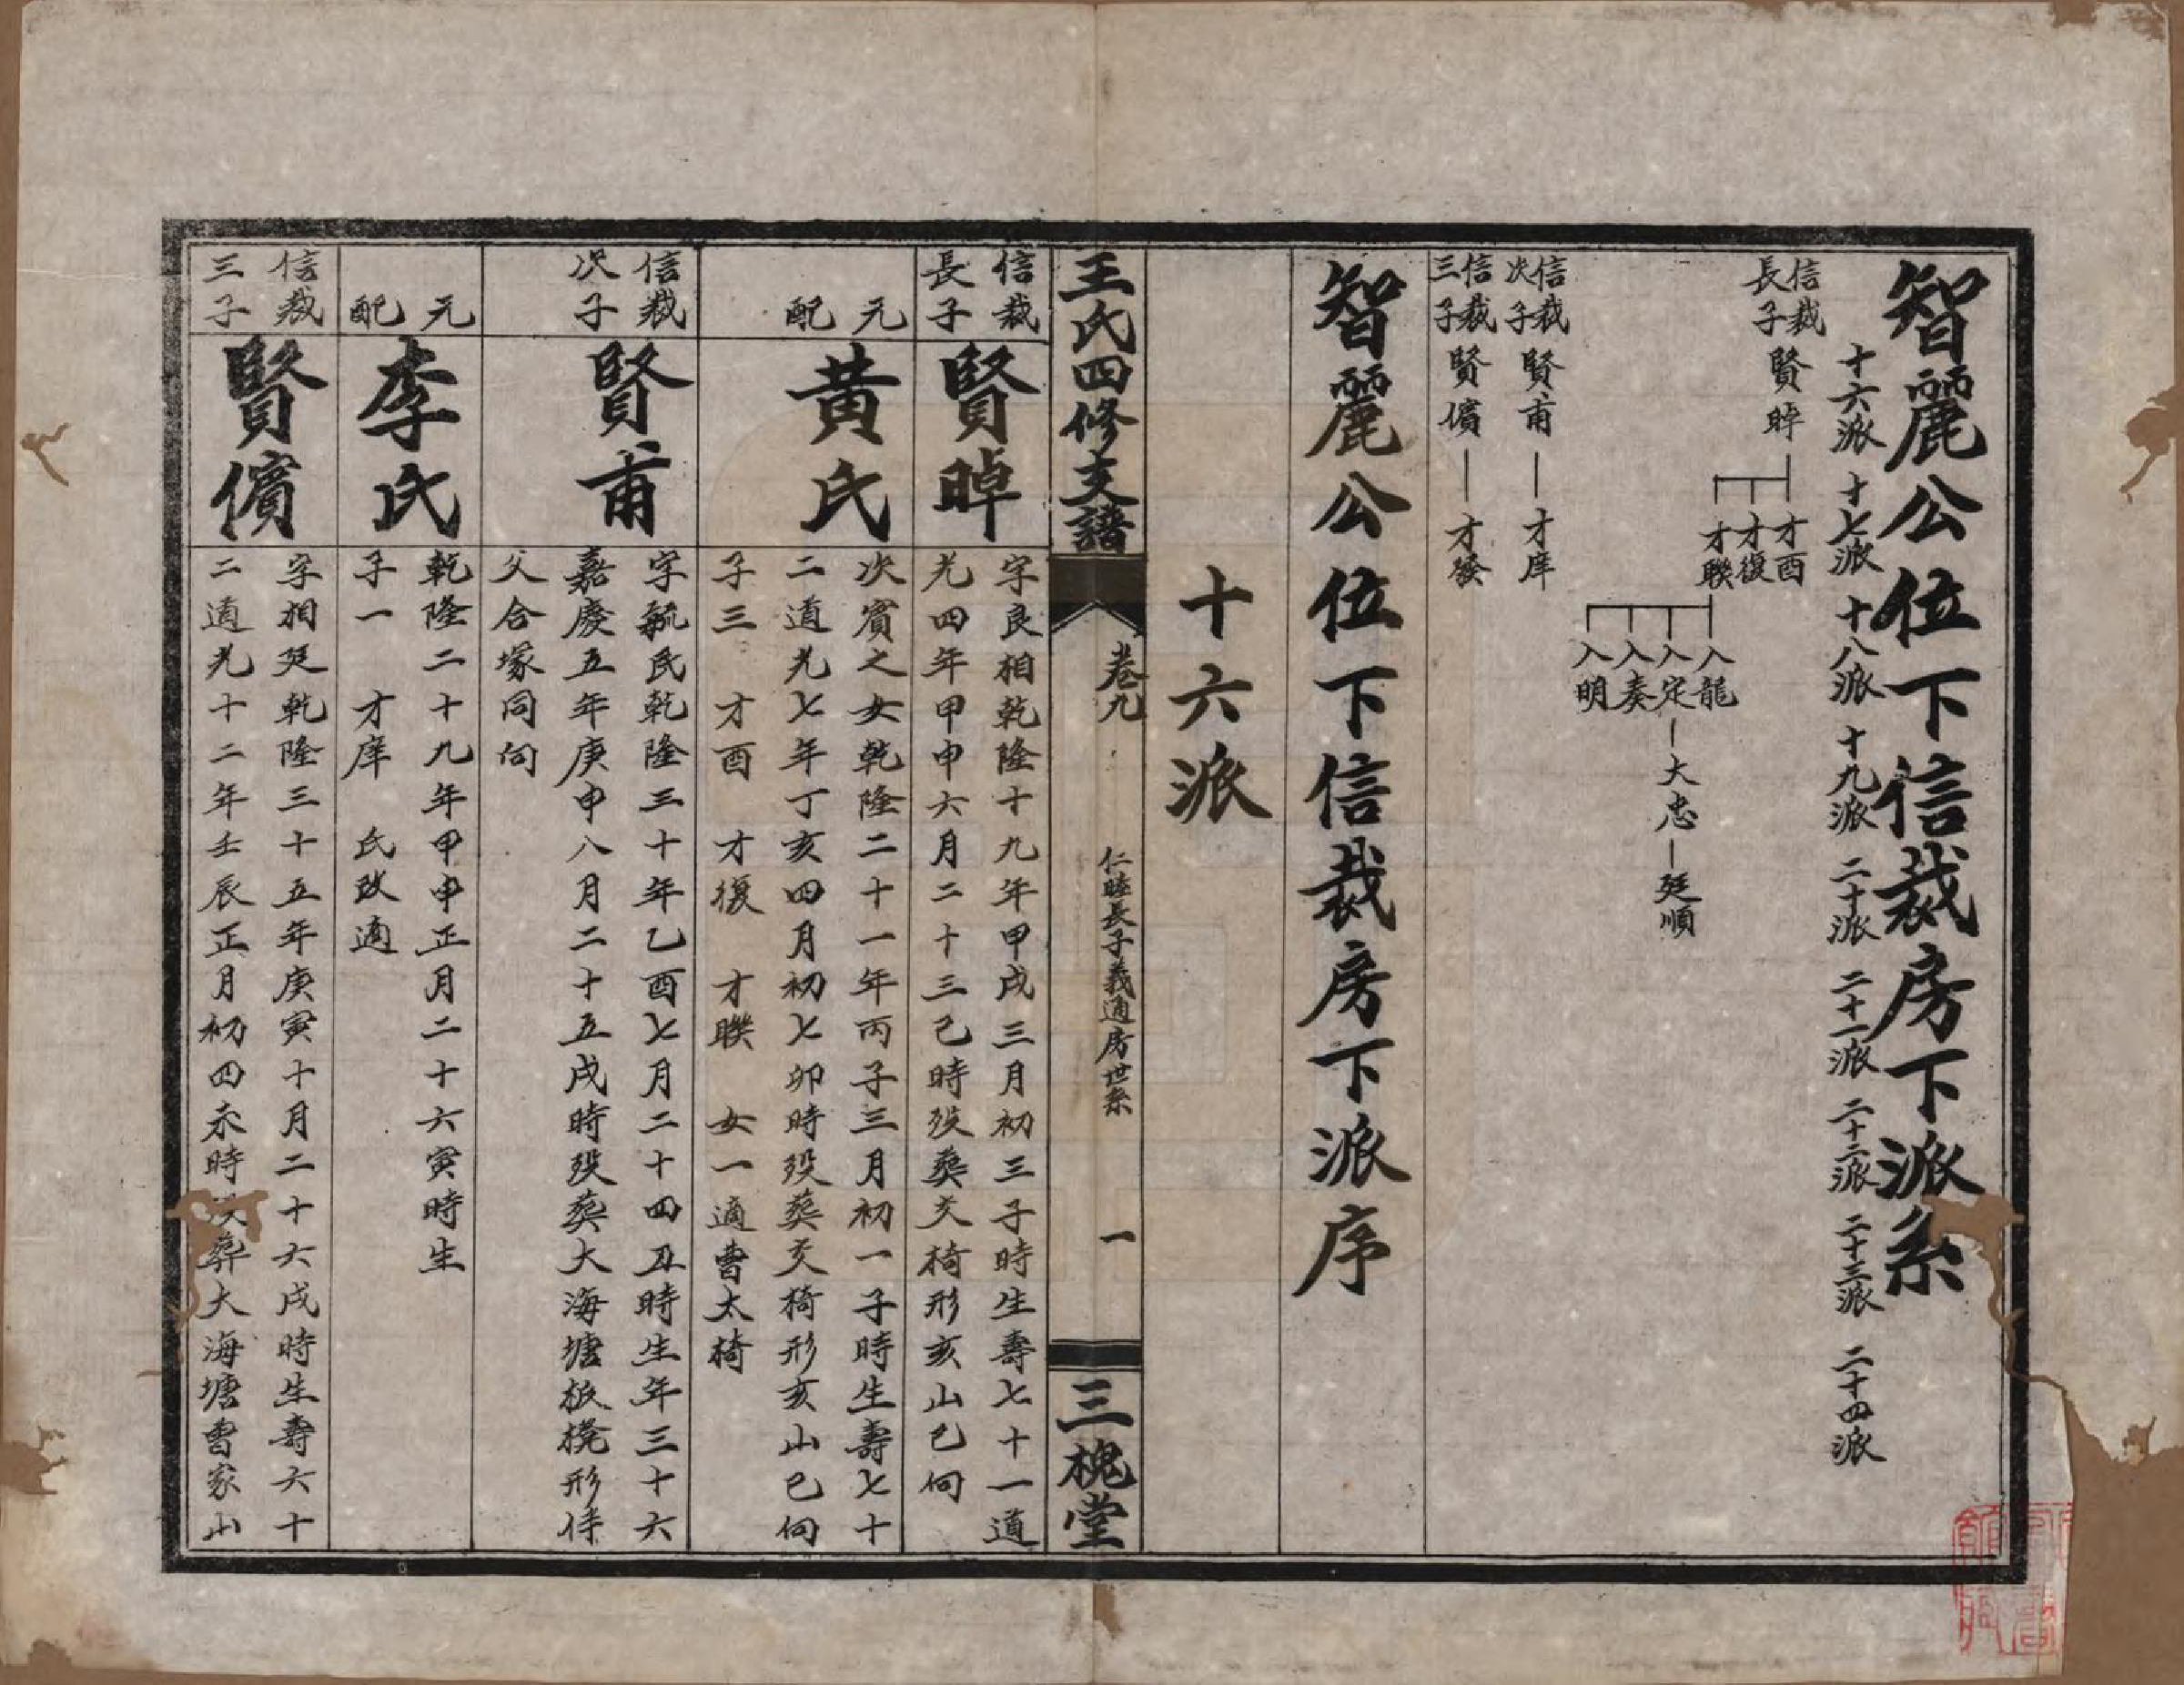 智麗公位下信裁房下派系
十六派 十七派 十八派 十九派 二十派 二十一派 二十二派 二十三派 二十四派
信裁長子 賢晫 才酉
才復
才聯
入龍
入定 大忠 廷順
入奏
入明
信裁次子 賢甫 才庠
信裁三子 賢儐 才發
智麗公位下信裁房下派序
十六派
王氏四修支譜 卷九 仁睦長子義通房世系 一 三槐堂
信裁長子
賢晫
字良相乾隆十九年甲戌三月初三子時生壽七十一道
光四年甲申六月二十三己時歿葬交椅形亥山巳向
元配
黃氏
次賓之女乾隆二十一年丙子三月初一子時生壽七十
二道光七年丁亥四月初七卯時歿葬交椅形亥山巳向
子三 才酉 才復 才聯 女一適曹太椅
信裁次子
賢甫
字毓民乾隆三十年乙酉七月二十四丑時生年三十六
嘉慶五年庚申八月二十五戌時歿葬大海塘板櫈形侍
父合塚同向
元配
李氏
乾隆二十九年甲申正月二十六寅時生
子一 才庠 氏改適
信裁三子
賢儐
字相廷乾隆三十五年庚寅十月二十六戌時生壽六十
二道光十二年壬辰正月初四未時歿葬大海塘曹家山